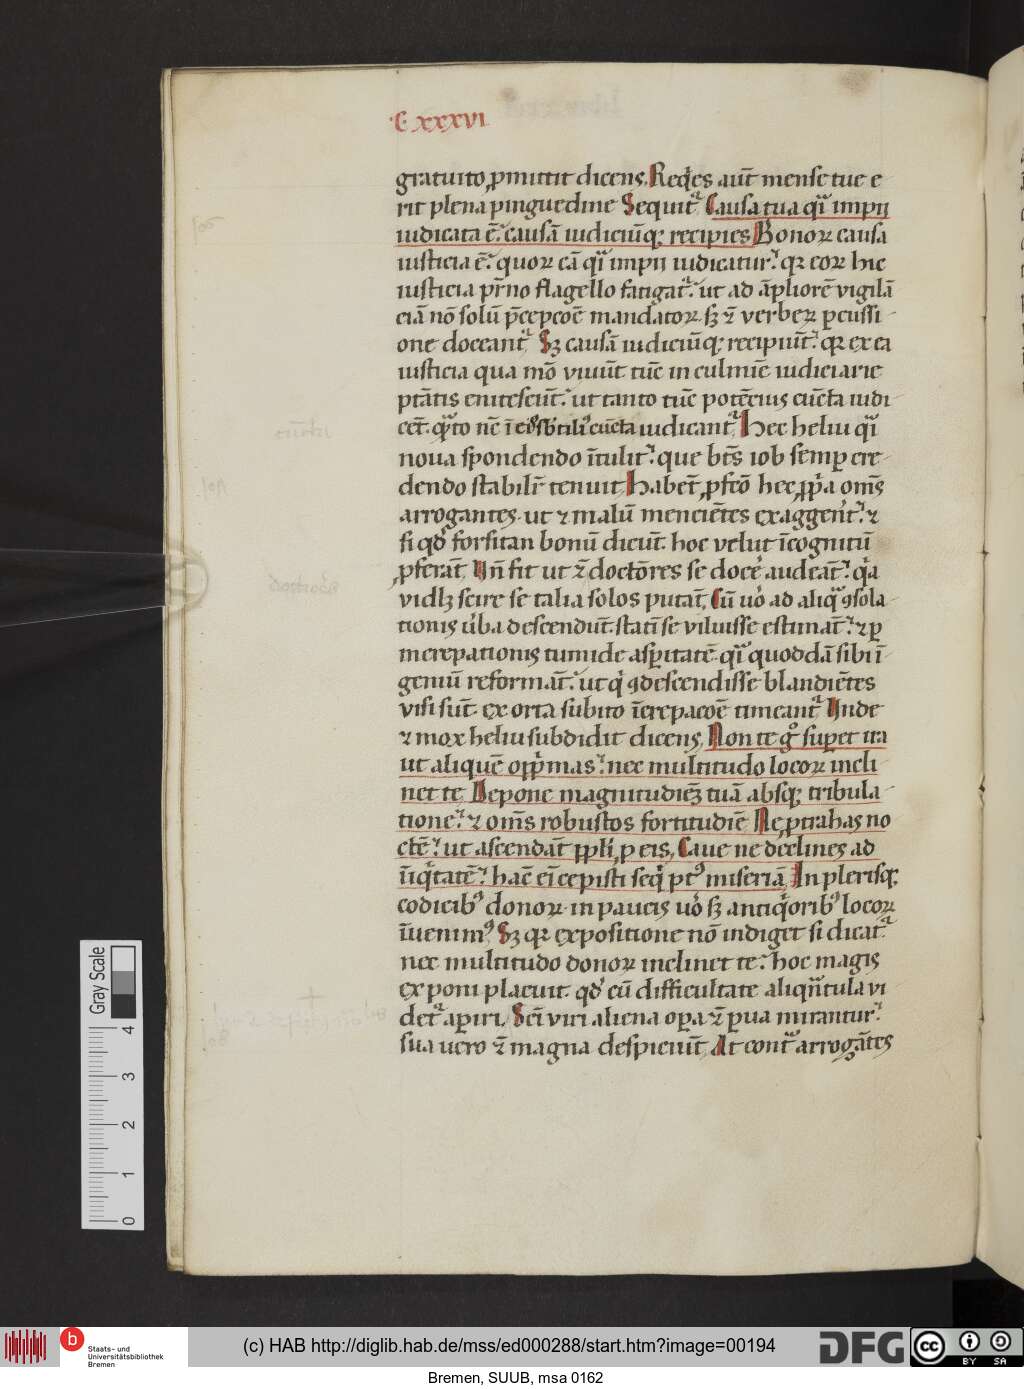 C xxxvi
gratuito ꝓmittit dicens. Reqͥes aut̄ mense tue e
rit plena pinguedine Sequitᷣ. Causa tua qͣi impij
iudicata ē. causā iudiciūqꝫ recipies Bonoꝝ causa
iusticia ē. quoꝝ cā qͣi impij iudicaturᷣ. qꝛ eoꝝ hic
iusticia pr̄no flagello fatigatᷣ. ut ad āpliorē vigilā
ciā nō solū p̄cepcoē mandatoꝝ. sꝫ ⁊ verbeꝝ ꝑcussi
one doceantᷣ. Sꝫ causā iudiciūqꝫ recipiūt. qꝛ ex ea
iusticia qua mō viuūt tūc in culmīe iudiciarie
ptātis enitescūt. ut tanto tūc potēcius cūcta iudi
cēt. qͣto nē ī eis subtiliꝰ cūcta iudicantᷣ. Hec heliu qͣi
noua spondendo ītulit. que bt̄s iob semꝑ cre
dendo stabilīt tenuit Habet̄ ꝓfcō hec ꝓpͥa om̄s
arrogantes. ut ⁊ malū mencīetes exaggerēt. ⁊
si qd̕ forsitan bonū dicūt. hoc velut īcognitū
ꝓferāt. Un̄ fit ut ⁊ doctores se docēͥ audeāt. qͥa
vidlꝫ scire se talia solos putāt. Cū uͦo ad aliqͣ ꝯsola
tionis ūba descendūt. statī se viluisse estimāt. ⁊ ꝑ
increpationis tumide asꝑitatē. qͣi quoddā sibi ī
geniū reformāt. ut qͥ ꝯdescendisse blandiētes
visi sūt. ex orta subito īcrepacoē timeantᷣ. Unde
⁊ mox heliu subdidit dicens. Non te gͦ suꝑet ira
ut aliquē opp̄mas. nec multitudo locoꝝ incli
net te Depone magnitudīeꝫ tuā absqꝫ tribula
tione. ⁊ om̄s robustos fortitudīe Ne ꝓtrahas no
ctē. ut ascendāt ppl̄i ꝓ eis. Caue ne declines ad
īiqͥtatē. hāc eī cepisti seqͥ ptꝰ miseriā In plerisqꝫ
codicibꝰ donoꝝ. in paucis uͦo sꝫ antiqͥoribꝰ locoꝝ
īuenimꝰ. Sꝫ qꝛ expositione nō indiget si dicatᷣ.
nec multitudo donoꝝ inclinet te. hoc magis
exponi placuit. qd̕ cū difficultate aliqūtula vi
detᷣ aꝑiri. Scī viri aliena oꝑa ⁊ ꝑua miranturᷣ.
sua uero ⁊ magna despiciūt At contᷓ arrogātes
Gray Scale
4
3
2
1
0
b
Staats- und
Universitätsbibliothek
Bremen
(c) HAB http://diglib.hab.de/mss/ed000288/start.htm?image=00194
DFG
cc
BY SA
Bremen, SUUB, msa 0162